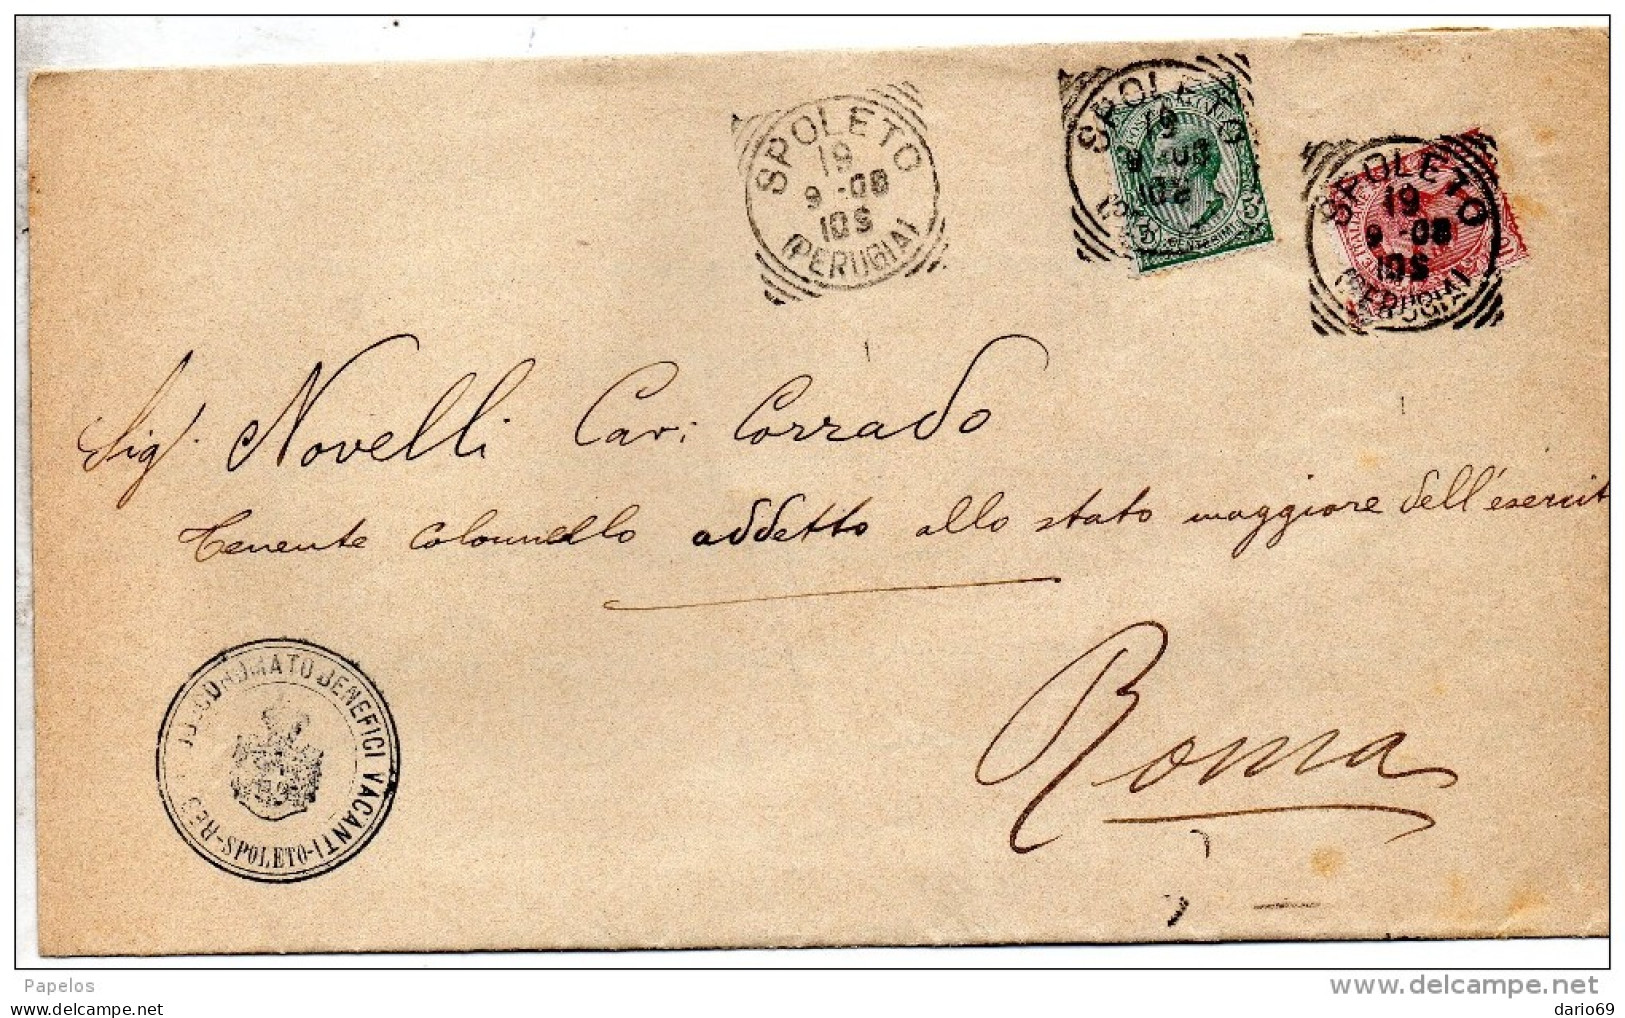 SPOLETO
19
9 - 08
10 S
(PERUGIA)
SPOLETO
19
9 - 08
10 S
5
5
CENTESIMI
SPOLETO
19
9 - 08
10 S
(PERUGIA)
Sigr. Novelli Cav: Corrado
Tenente colonnello addetto allo stato maggiore dell'esercit
Roma
BENEFICI VACANTI
SPOLETO
Papelos
delcampe.net
dario69